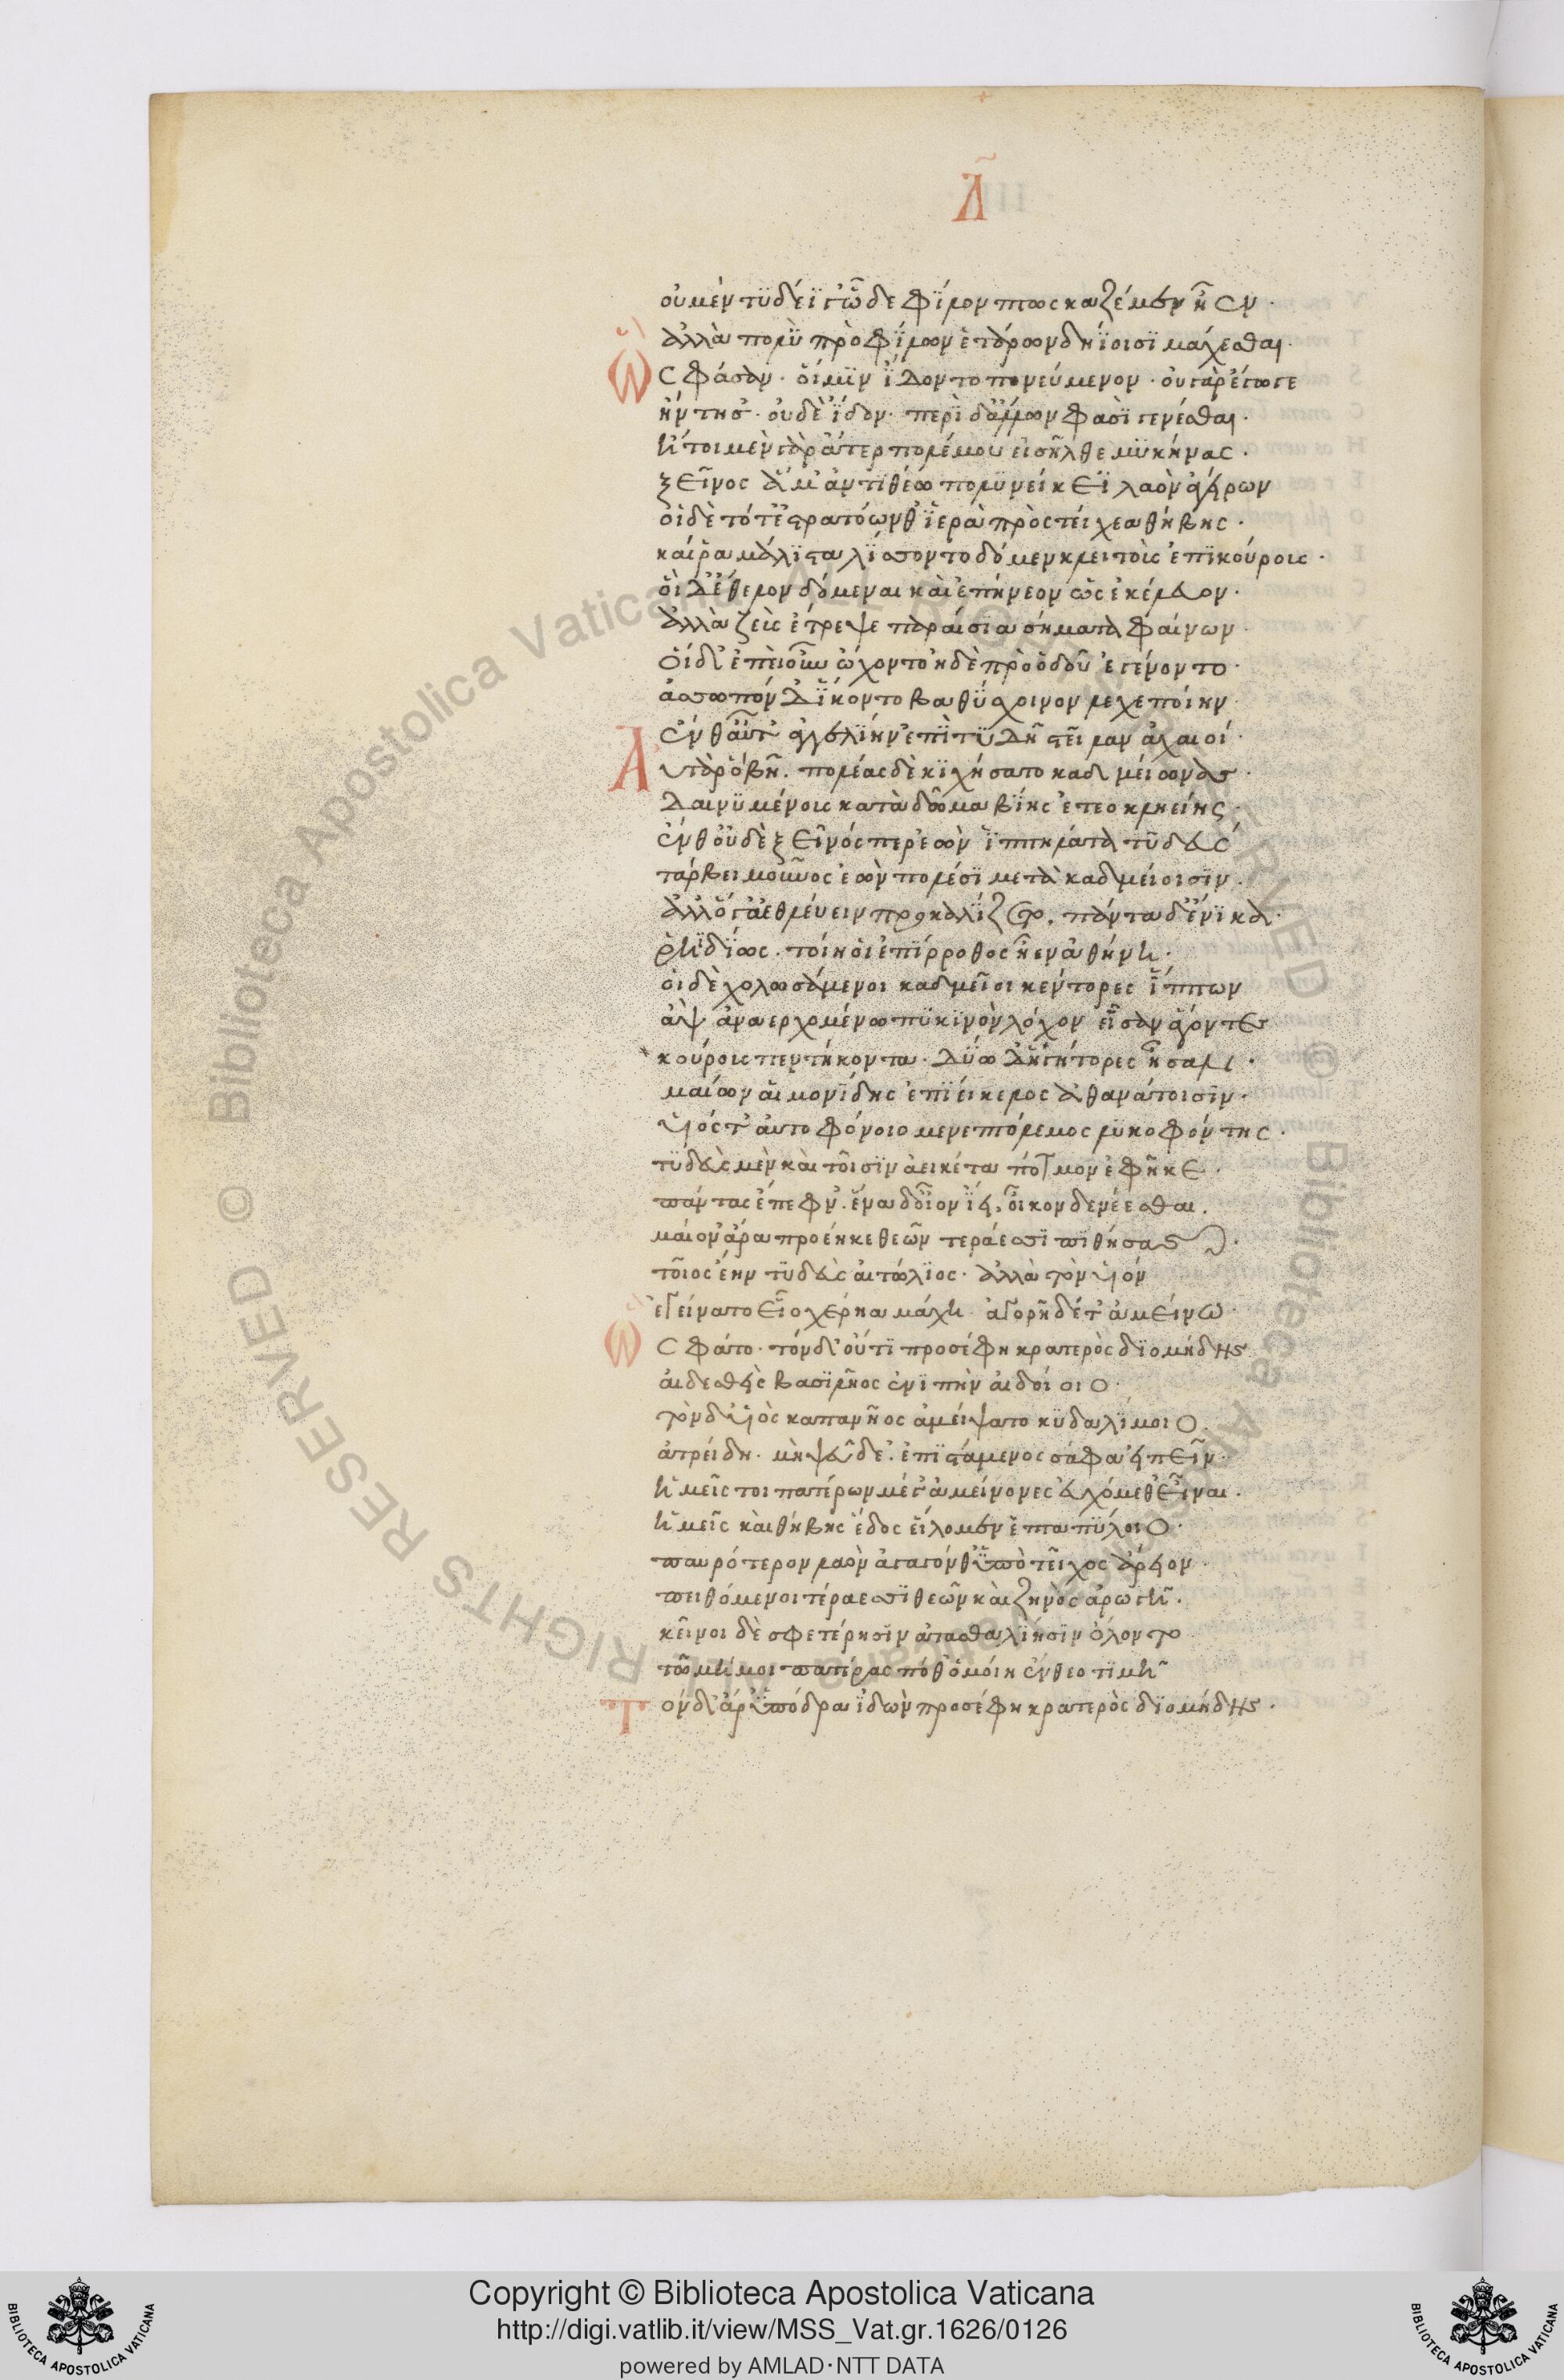 Δ
οὐ μὲν τυδέϊ γ' ὧδε φίλον πτωσκαζέμεν ἦεν·
ἀλλὰ πολὺ πρὸ φίλων ἑτάρων δηΐοισι μάχεσθαι·
Ὣς φάσαν· οἵ μιν ἴδοντο πονεύμενον· οὐ γὰρ ἔγωγε
ἤντησ'· οὐδὲ ἴδον· περὶ δ' ἄλλων φασὶ γενέσθαι·
ἤτοι μὲν γὰρ ἄτερ πολέμου εἰσῆλθε μυκήνας·
ξεῖνος ἅμ' ἀντιθέω πολυνείκεϊ λαὸν ἀγείρων
οἱ δὲ τότ' ἐστρατόωνθ' ἱερὰ πρὸς τείχεα θήβης·
καί ῥα μάλιστα λίσσοντο δόμεν κλειτοὺς ἐπικούρους·
οἱ δ' ἔθελον δόμεναι καὶ ἐπήνεον ὡς ἐκέλευον·
ἀλλὰ ζεὺς ἔτρεψε παραίσια σήματα φαίνων·
οἱ δ' ἐπεὶ οὖν ὤχοντο ἠδὲ πρὸ ὁδοῦ ἐγένοντο·
ἀσωπὸν δ' ἵκοντο βαθύσχοινον λεχεποίην·
ἔνθ' αὖτ' ἀγγελίην ἐπὶ τυδῆ στεῖλαν ἀχαιοί·
Αὐτὰρ ὃ βῆ. πολέας δὲ κιχήσατο καδμείωνας·
δαινυμένους κατὰ δῶμα βίης ἐτεοκληείης·
ἔνθ' οὐδὲ ξεῖνός περ ἐὼν ἱππηλάτα τυδεύς
τάρβει μοῦνος ἐὼν πολέσι μετὰ καδμείοισιν·
ἀλλ' ὅ γ' ἀεθλεύειν προκαλίζετο. πάντα δ' ἐνίκα·
ῥηϊδίως· τοίη οἱ ἐπίρροθος ἦεν ἀθήνη·
οἱ δὲ χολωσάμενοι καδμεῖοι κέντορες ἵππων
ἂψ ἀναερχομένω πυκινὸν λόχον εἷσαν ἄγοντες
κούρους πεντήκοντα· δύω δ' ἡγήτορες ἦσαν·
μαίων αἱμονίδης ἐπιείκελος ἀθανάτοισιν·
υἱός τ' αὐτοφόνοιο μενεπτόλεμος λυκοφόντης·
τυδεὺς μὲν καὶ τοῖσιν ἀεικέα πότμον ἐφῆκε·
πάντας ἔπεφν'. ἕνα δ' οἶον ἵει οἶκον δε νέεσθαι.
μαίον' ἄρα προέηκε θεῶν τεράεσσι πιθήσας·
τοῖος ἔην τυδεὺς αἰτώλιος· ἀλλὰ τὸν υἱόν
ἐγείνατο εἷο χέρηα μάχη· ἀγορῇ δέ τ' ἀμείνω·
Ὣς φάτο· τὸν δ' οὔ τι προσέφη κρατερὸς διομήδης
αἰδεσθεὶς βασιλῆος ἐνιπὴν αἰδοίοιο·
τὸν δ' υἱὸς καπανῆος ἀμείψατο κυδαλίμοιο.
ἀτρείδη· μὴ ψεύδε'. ἐπιστάμενος σάφα εἰπεῖν·
ἡμεῖς τοι πατέρων μέγ' ἀμείνονες εὐχόμεθ' εἶναι·
ἡμεῖς καὶ θήβης ἕδος εἵλομεν ἑπταπύλοιο·
παυρότερον λαὸν ἀγαγόνθ' ὑπὸ τεῖχος ἄρειον·
πειθόμενοι τεράεσσι θεῶν καὶ ζηνὸς ἀρωγῇ·
κεῖνοι δὲ σφετέρησιν ἀτασθαλίησιν ὄλοντο
τῶ μή μοι πατέρας ποθ' ὁμοίη ἔνθεο τιμῇ
Τὸν δ' ἄρ' ὑπόδρα ἰδὼν προσέφη κρατερὸς διομήδης·
Copyright © Biblioteca Apostolica Vaticana
http://digi.vatlib.it/view/MSS_Vat.gr.1626/0126
powered by AMLAD·NTT DATA